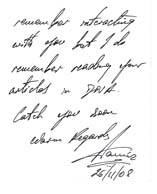 remember interacting
with you but I do
remember reading your
articles in DNA.
Catch you soon
Warm Regards
26/11/08